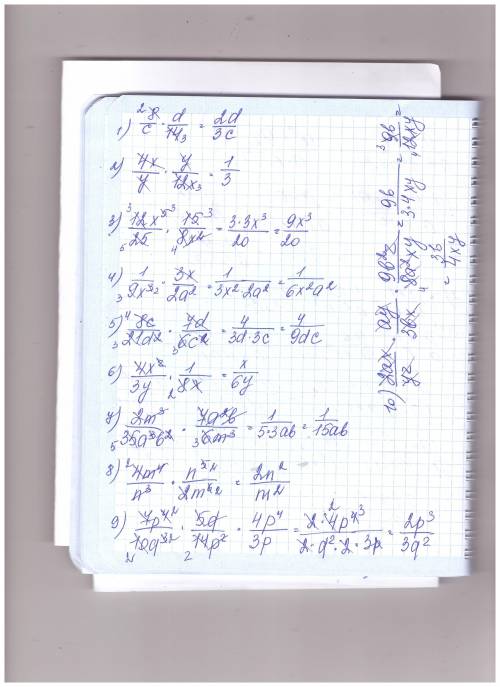 1) 8/c · d/14 = 2d/3c
2) 4x/y · y/12x = 1/3
3) 12x⁵/25 · 15/8x² = 3·3x³/20 = 9x³/20
4) 1/9x³ · 3x/2a² = 1/3x²·2a² = 1/6x²a²
5) 8c/21d² · 7d/6c² = 4/3d·3c = 4/9dc
6) 4x²/3y · 1/8x = x/6y
7) 2m³/35a³b² · 7a²b/6m³ = 1/5·3ab = 1/15ab
8) 4m⁴/n³ · n⁵/2m⁴ = 2n²/m²
9) 7p⁴/10q³ · 5q/14p² · 4p⁴/3p = 2·4p⁴/2·q²·2·3p = 2p³/3q²
10) 2ax/y² · ay/3bx · 9b²/8a²xy = 9b/3·4xy = 9b/12xy =
= 3b/4xy